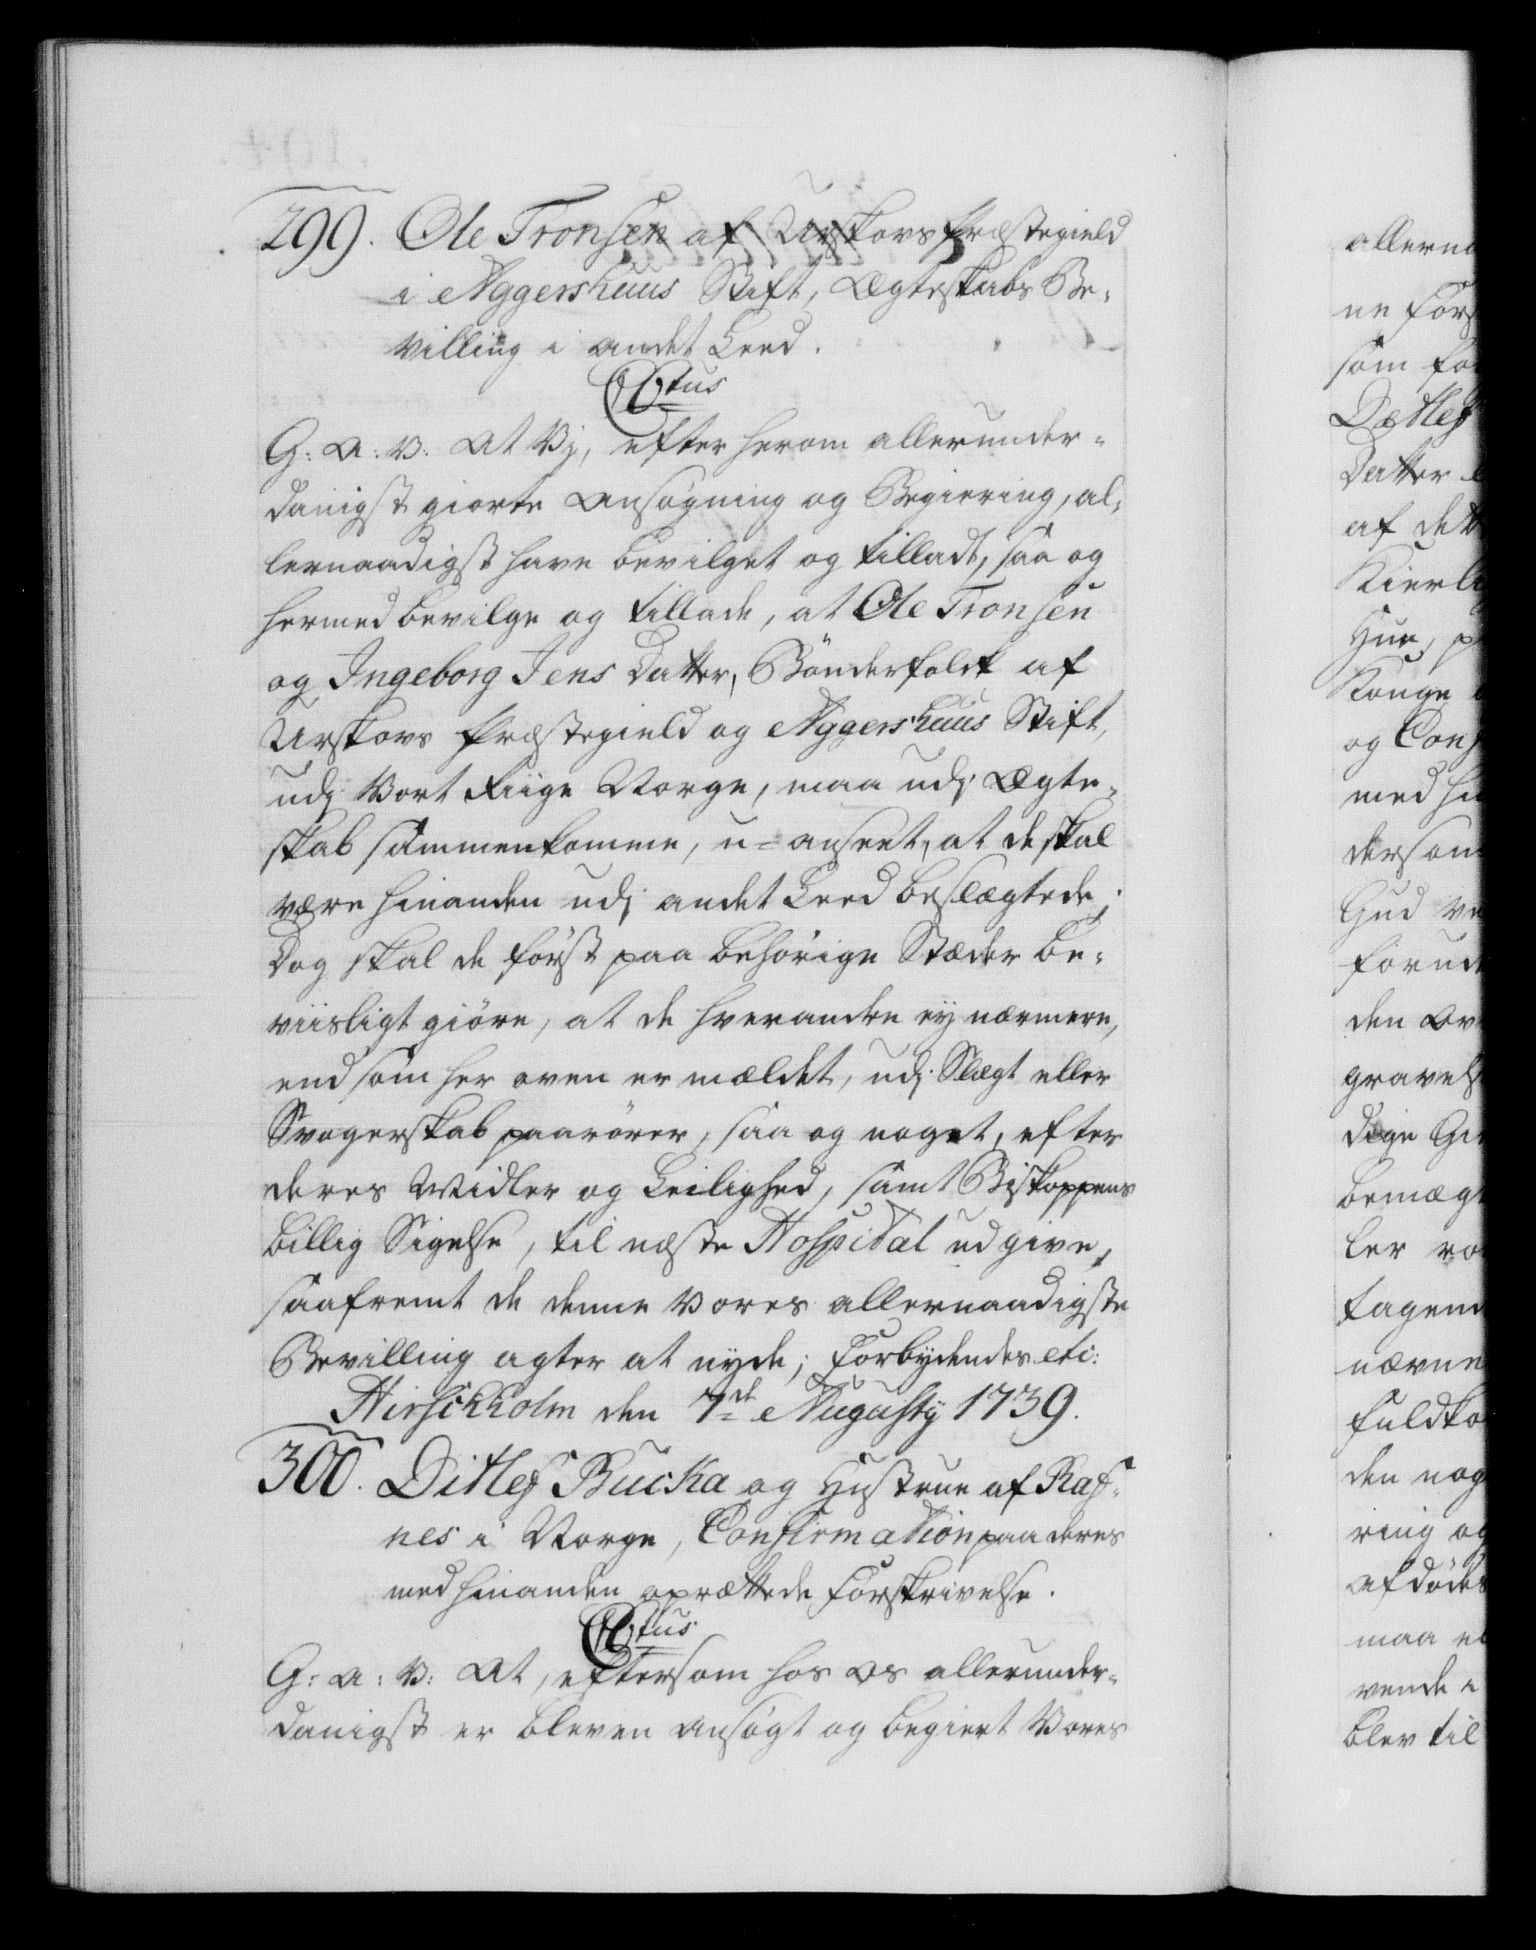 299. Ole Tronsen af Urskovs Præstegield
i Aggershuus Stift, Ægteskabs Be-
villing i andet Leed.
C6tus
G: A: V: At Vj, efter herom allerunder-
danigst giorte Ansøgning og Begiering, al-
lernaadigst have bevilget og tilladt, saa og
hermed bevilge og tillade, at Ole Tronsen
og Ingeborg Jens Datter, Bönderfolck af
Urskovs Præstegield og Aggershuus Stift,
udj Vort Riige Norge, maa udj Ægte-
skab sammenkomme, u-anseet, at de skal
være hinanden udj andet Leed beslægtede;
Dog skal de först paa behörige Stæder be-
viisligt giöre, at de hverandre ey nærmere,
end som her oven er mældet, udj Slægt eller
Svogerskab paarörer, saa og noget, efter
deres Midler og Leilighed, samt Biskoppens
billig Sigelse, til næste Hospital udgive,
saafremt de denne Vores allernaadigste
Bevilling agter at nyde; Forbydendes etc:
Hirschholm den 7de Augusty 1739.
300. Ditlef Bucka og Hustrue af Raf-
nes i Norge, Confirmation paa deres
med hinanden oprættede Forskrivelse.
C6tus
G: A: V: At, eftersom hos Os allerunder-
danigst er bleven ansögt og begiert Vores
allerna
ne Fors
som fo
Ditlef
Datter
af dett
Kierli
Hun, p
Konge
og Conf
med hi
dersom
Gud
forud
den
gravels
dige
bemægt
ler
tagen
nævne
fuldko
den nog
ring og
afdödes
maa
vende
blev til